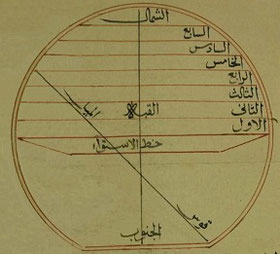 الشمال
السابع
السادس
الخامس
الرابع
الثالث
الثانى
الاول
خط الاستواء
الجنوب